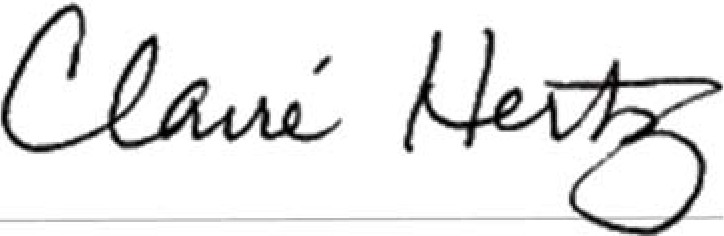 Claire Hertz